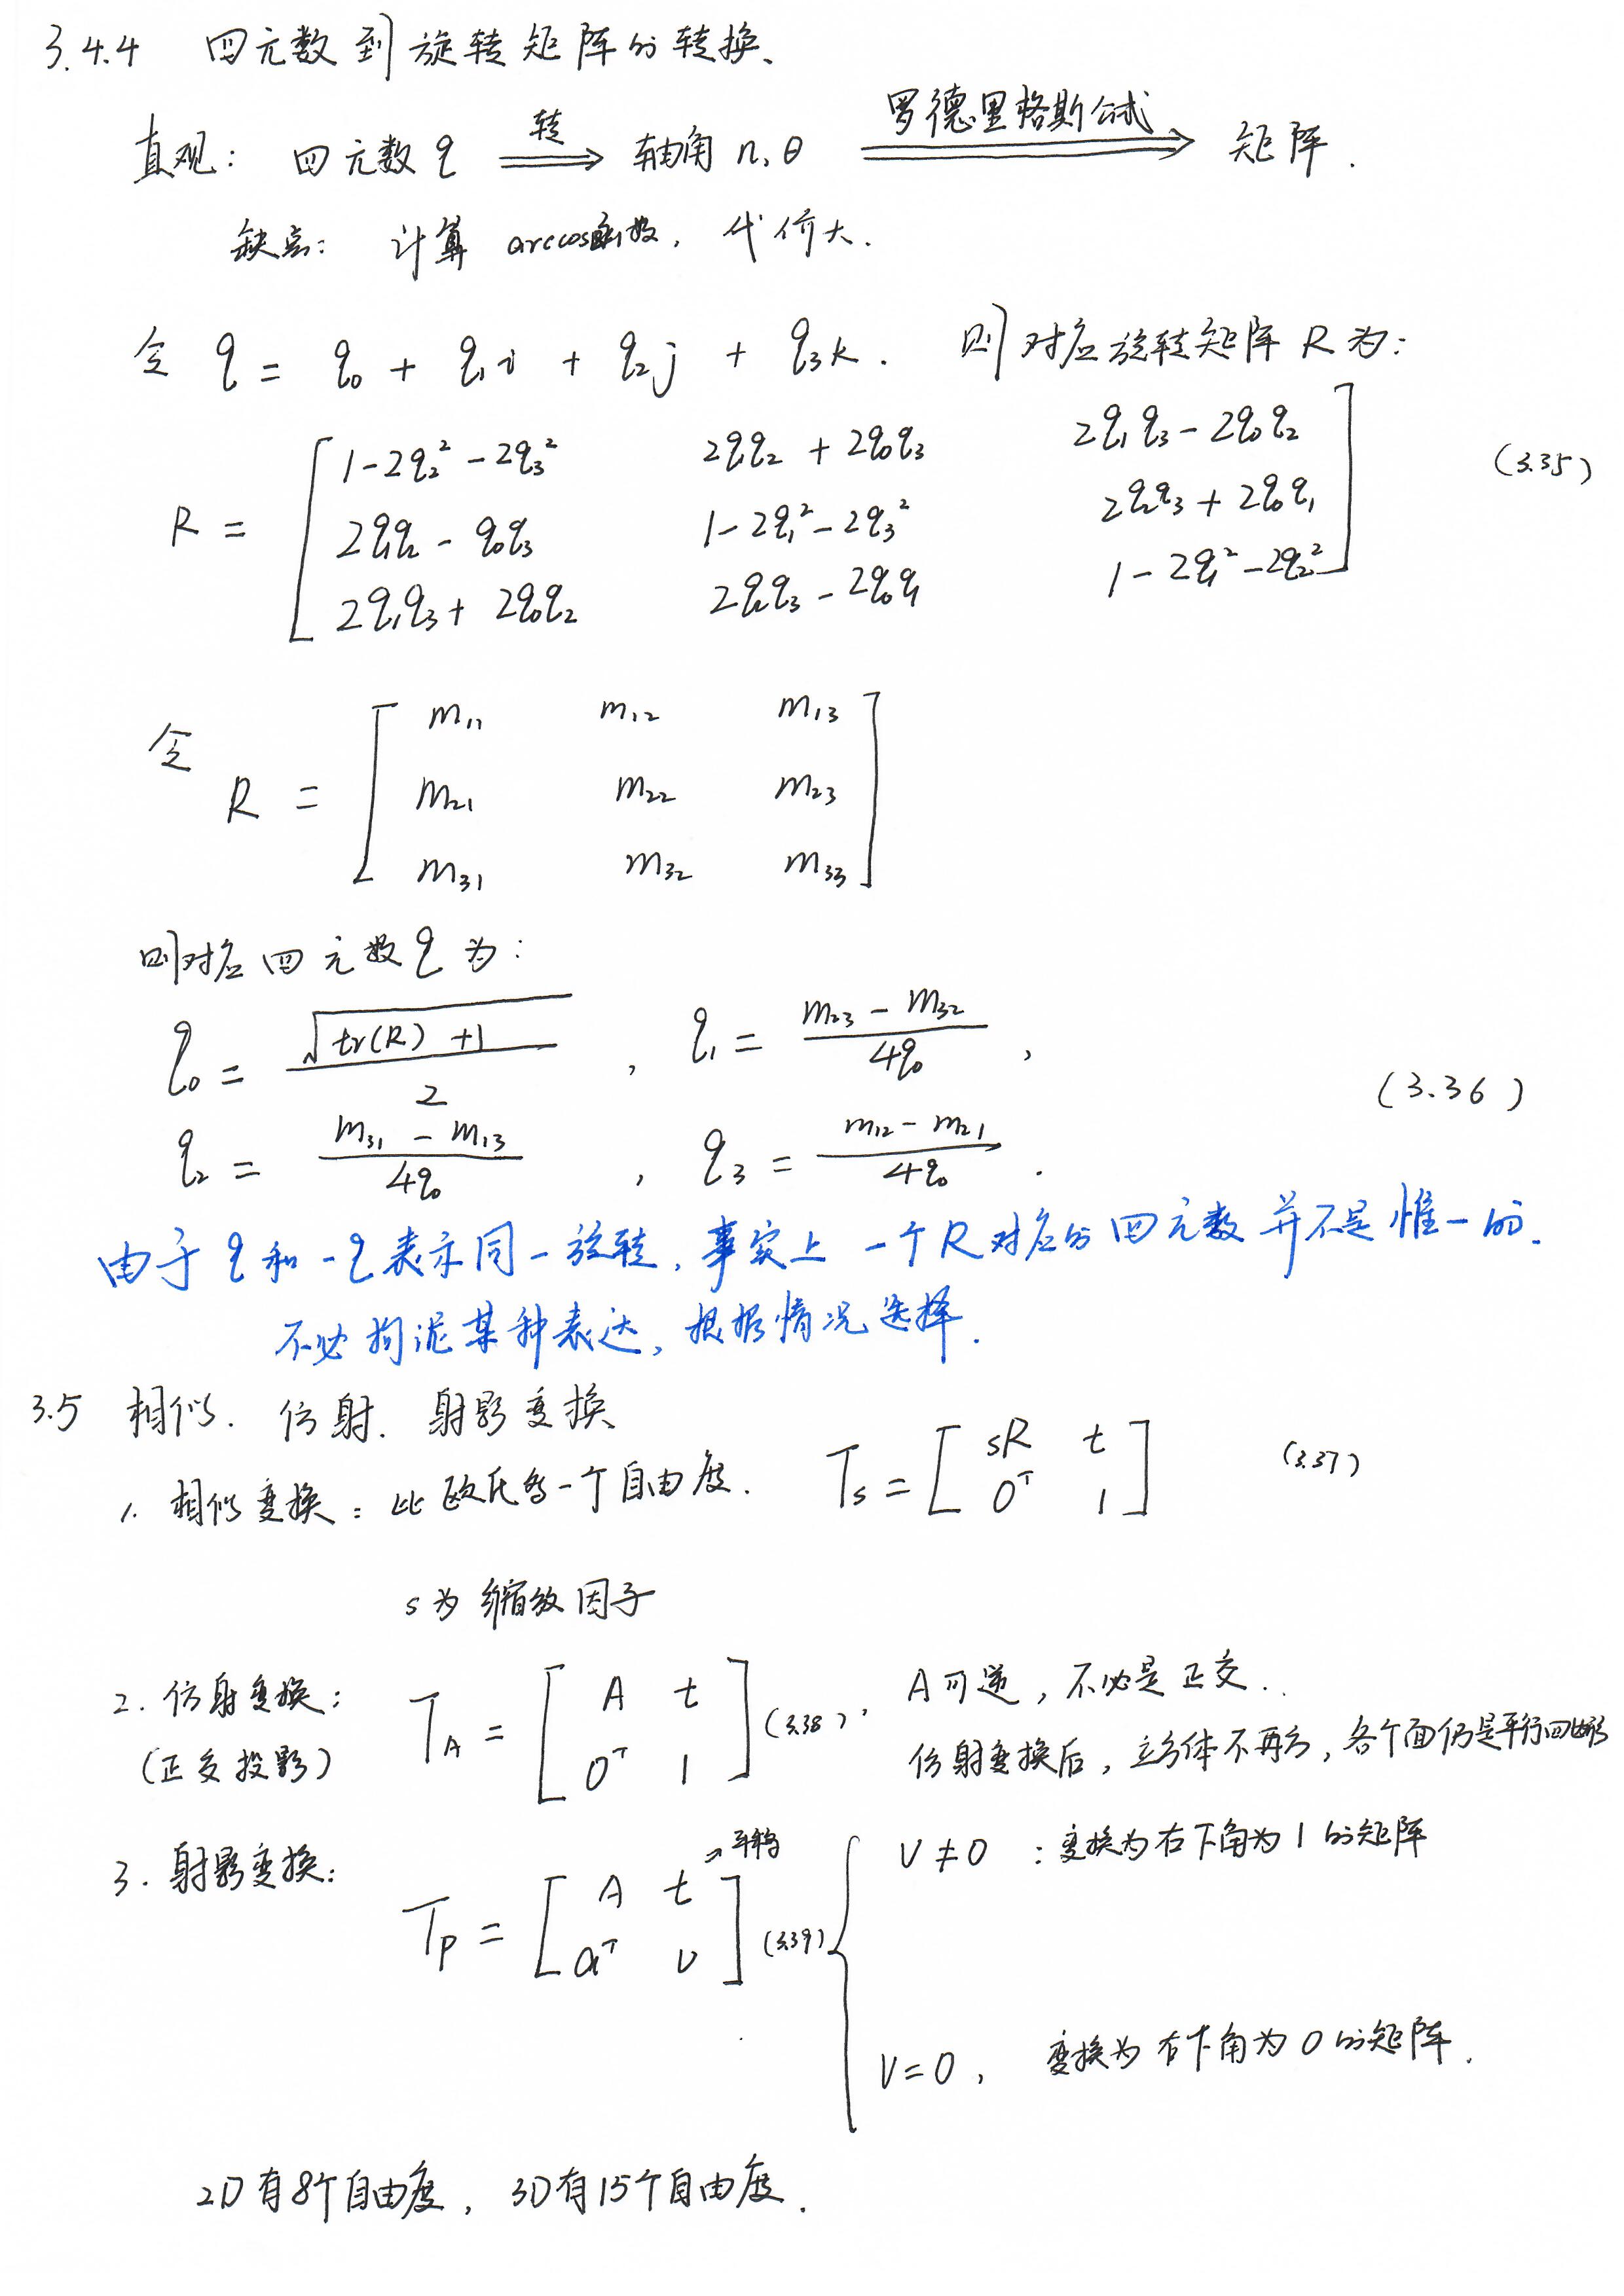 3.4.4 四元数到旋转矩阵的转换、
直观: 四元数 q ⟹(转) 轴角 n, θ ⟹(罗德里格斯公式) 矩阵.
缺点: 计算 arccos函数, 代价大.
令 q = q₀ + q₁i + q₂j + q₃k. 则对应旋转矩阵 R 为:
R = [ 1-2q₂²-2q₃² 2q₁q₂+2q₀q₃ 2q₁q₃-2q₀q₂
2q₁q₂-q₀q₃ 1-2q₁²-2q₃² 2q₂q₃+2q₀q₁
2q₁q₃+2q₀q₂ 2q₂q₃-2q₀q₁ 1-2q₁²-2q₂² ] (3.35)
令
R = [ m₁₁ m₁₂ m₁₃
m₂₁ m₂₂ m₂₃
m₃₁ m₃₂ m₃₃ ]
则对应四元数 q 为:
q₀ = √(tr(R)+1) / 2 , q₁ = (m₂₃ - m₃₂) / 4q₀ ,
(3.36)
q₂ = (m₃₁ - m₁₃) / 4q₀ , q₃ = (m₁₂ - m₂₁) / 4q₀ .
由于 q 和 -q 表示同一旋转, 事实上 一个 R 对应的四元数并不是惟一的.
不必拘泥某种表达, 根据情况选择.
3.5 相似. 仿射. 射影变换
1. 相似变换: 比欧氏多一个自由度. Ts = [ sR t
0ᵀ 1 ] (3.37)
s为缩放因子
2. 仿射变换: T_A = [ A t
0ᵀ 1 ] (3.38), A可逆, 不必是正交..
(正交投影) 仿射变换后, 立方体不再方, 各个面仍是平行四边形
3. 射影变换: →平移
T_P = [ A t
aᵀ v ] (3.39) { v≠0 : 变换为右下角为1的矩阵
v=0, 变换为右下角为0的矩阵.
2D有8个自由度, 3D有15个自由度.